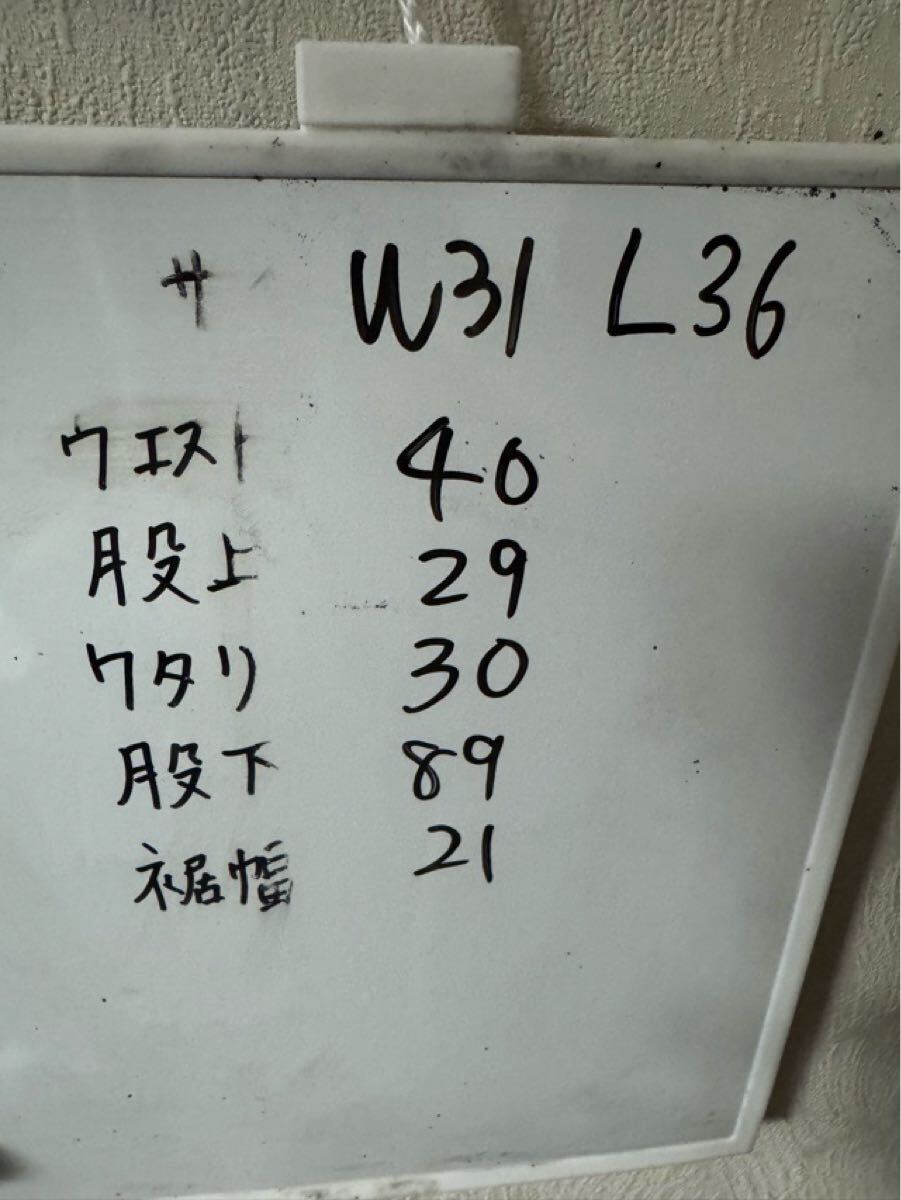 サ W31 L36
ウエスト 40
股上 29
ワタリ 30
股下 89
裾幅 21